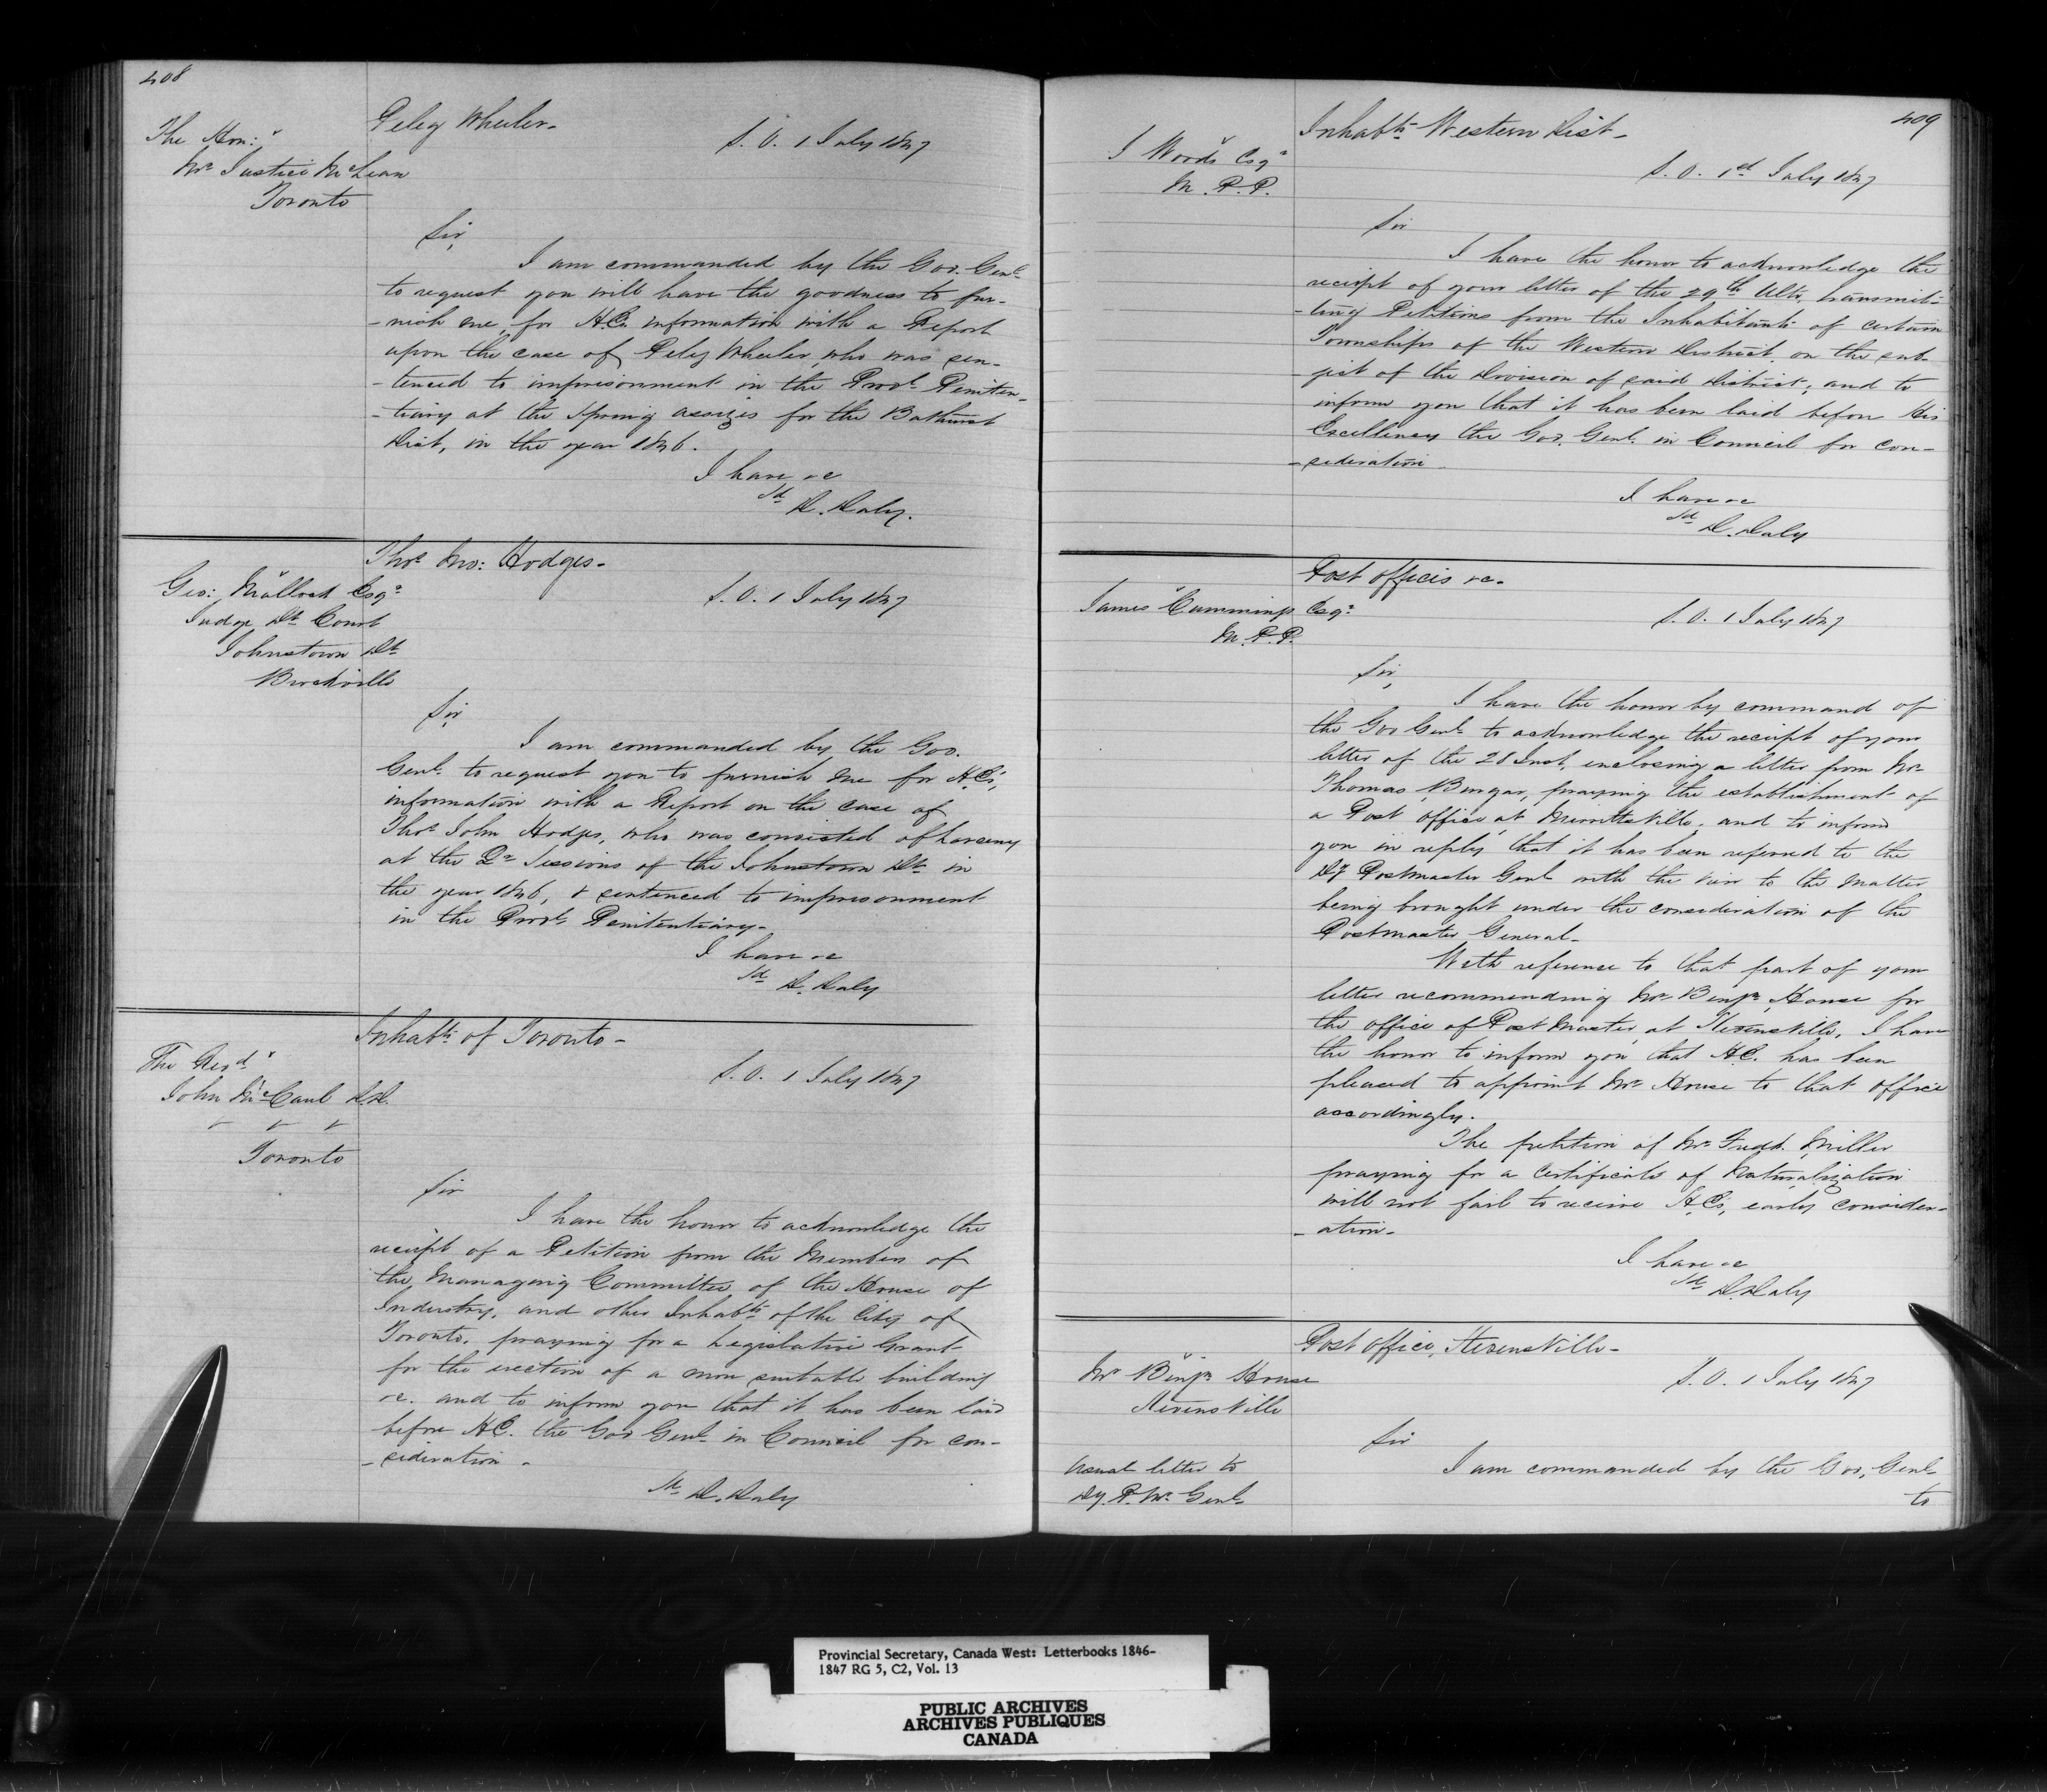 408
Peleg Wheeler-
The Hon:
Mr Justice McLean
Toronto
S. O. 1 July 1847
Sir,
I am commanded by the Gov. Genl
to request you will have the goodness to fur-
-nish me, for H.E's information with a Report
upon the case of Peleg Wheeler, who was sen-
-tenced to imprisonment in the Provl Peniten-
-tiary at the Spring assizes for the Bathurst
Dist, in the year 1846.
I have &c
Sd D. Daly.
Thos Jno: Hodges-
Geo: Malloch Esqr
Judge Dt Court
Johnstown Dt
Brockville
S. O. 1 July 1847
Sir,
I am commanded by the Gov.
Genl to request you to furnish me for H.E's,
information with a Report on the case of
Thos John Hodges, who was convicted of Larceny
at the Qr Sessions of the Johnstown Dt in
the year 1846, & sentenced to imprisonment
in the Provl Penitentiary-
I have &c
Sd D. Daly
Inhabts of Toronto-
The Revd
John McCaul D.D.
Toronto
S. O. 1 July 1847
Sir
I have the honor to acknowledge the
receipt of a Petition from the Members of
the Managing Committee of the House of
Industry, and other Inhabts of the City of
Toronto, praying for a Legislative Grant
for the erection of a more suitable building
&c. and to inform you that it has been laid
before H.E. the Gov Genl in Council for con-
-sideration-
Sd D. Daly
409
Inhabts Western Dist-
J Woods Esqr
M. P. P.
S. O. 1st July 1847
Sir
I have the honor to acknowledge the
receipt of your letter of the 29th Ulto, transmit-
-ting Petitions from the Inhabitants of certain
Townships of the Western District, on the sub-
-ject of the Division of said District; and to
inform you that it has been laid before His
Excellency the Gov. Genl. in Council for con-
-sideration-
I have &c
Sd D. Daly
Post offices &c-
James Cummings Esqr
M. P. P.
S. O. 1 July 1847
Sir,
I have the honor by command of
the Gov Genl to acknowledge the receipt of your
letter of the 28 Inst, enclosing a letter from Mr
Thomas Burgar, praying the establishment of
a Post office at Merrittsville, and to inform
you in reply that it has been referred to the
Dy Postmaster Genl with the view to the matter
being brought under the consideration of the
Postmaster General-
With reference to that part of your
letter recommending Mr Benjn House for
the office of Post Master at Stevensville, I have
the honor to inform you that H.E. has been
pleased to appoint Mr House to that office
accordingly.
The petition of Mr Fredk. Miller
praying for a Certificate of Naturalization
will not fail to receive H.E's, early consider-
-ation-
I have &c
Sd D. Daly
Post office, Stevensville-
Mr Benjn House
Stevensville
S. O. 1 July 1847
Sir
Usual letter to
Dy. P. Mr Genl
I am commanded by the Gov, Genl
to
Provincial Secretary, Canada West: Letterbooks 1846-
1847 RG 5, C2, Vol. 13
PUBLIC ARCHIVES
ARCHIVES PUBLIQUES
CANADA